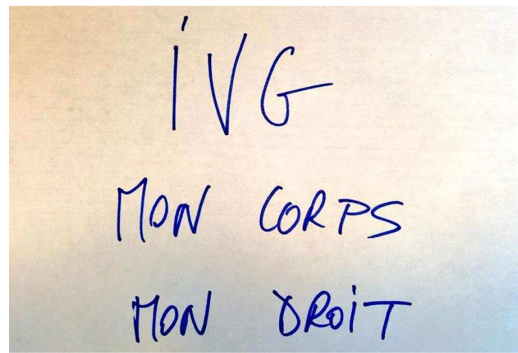 iVG
MON CORPS
MON DROIT